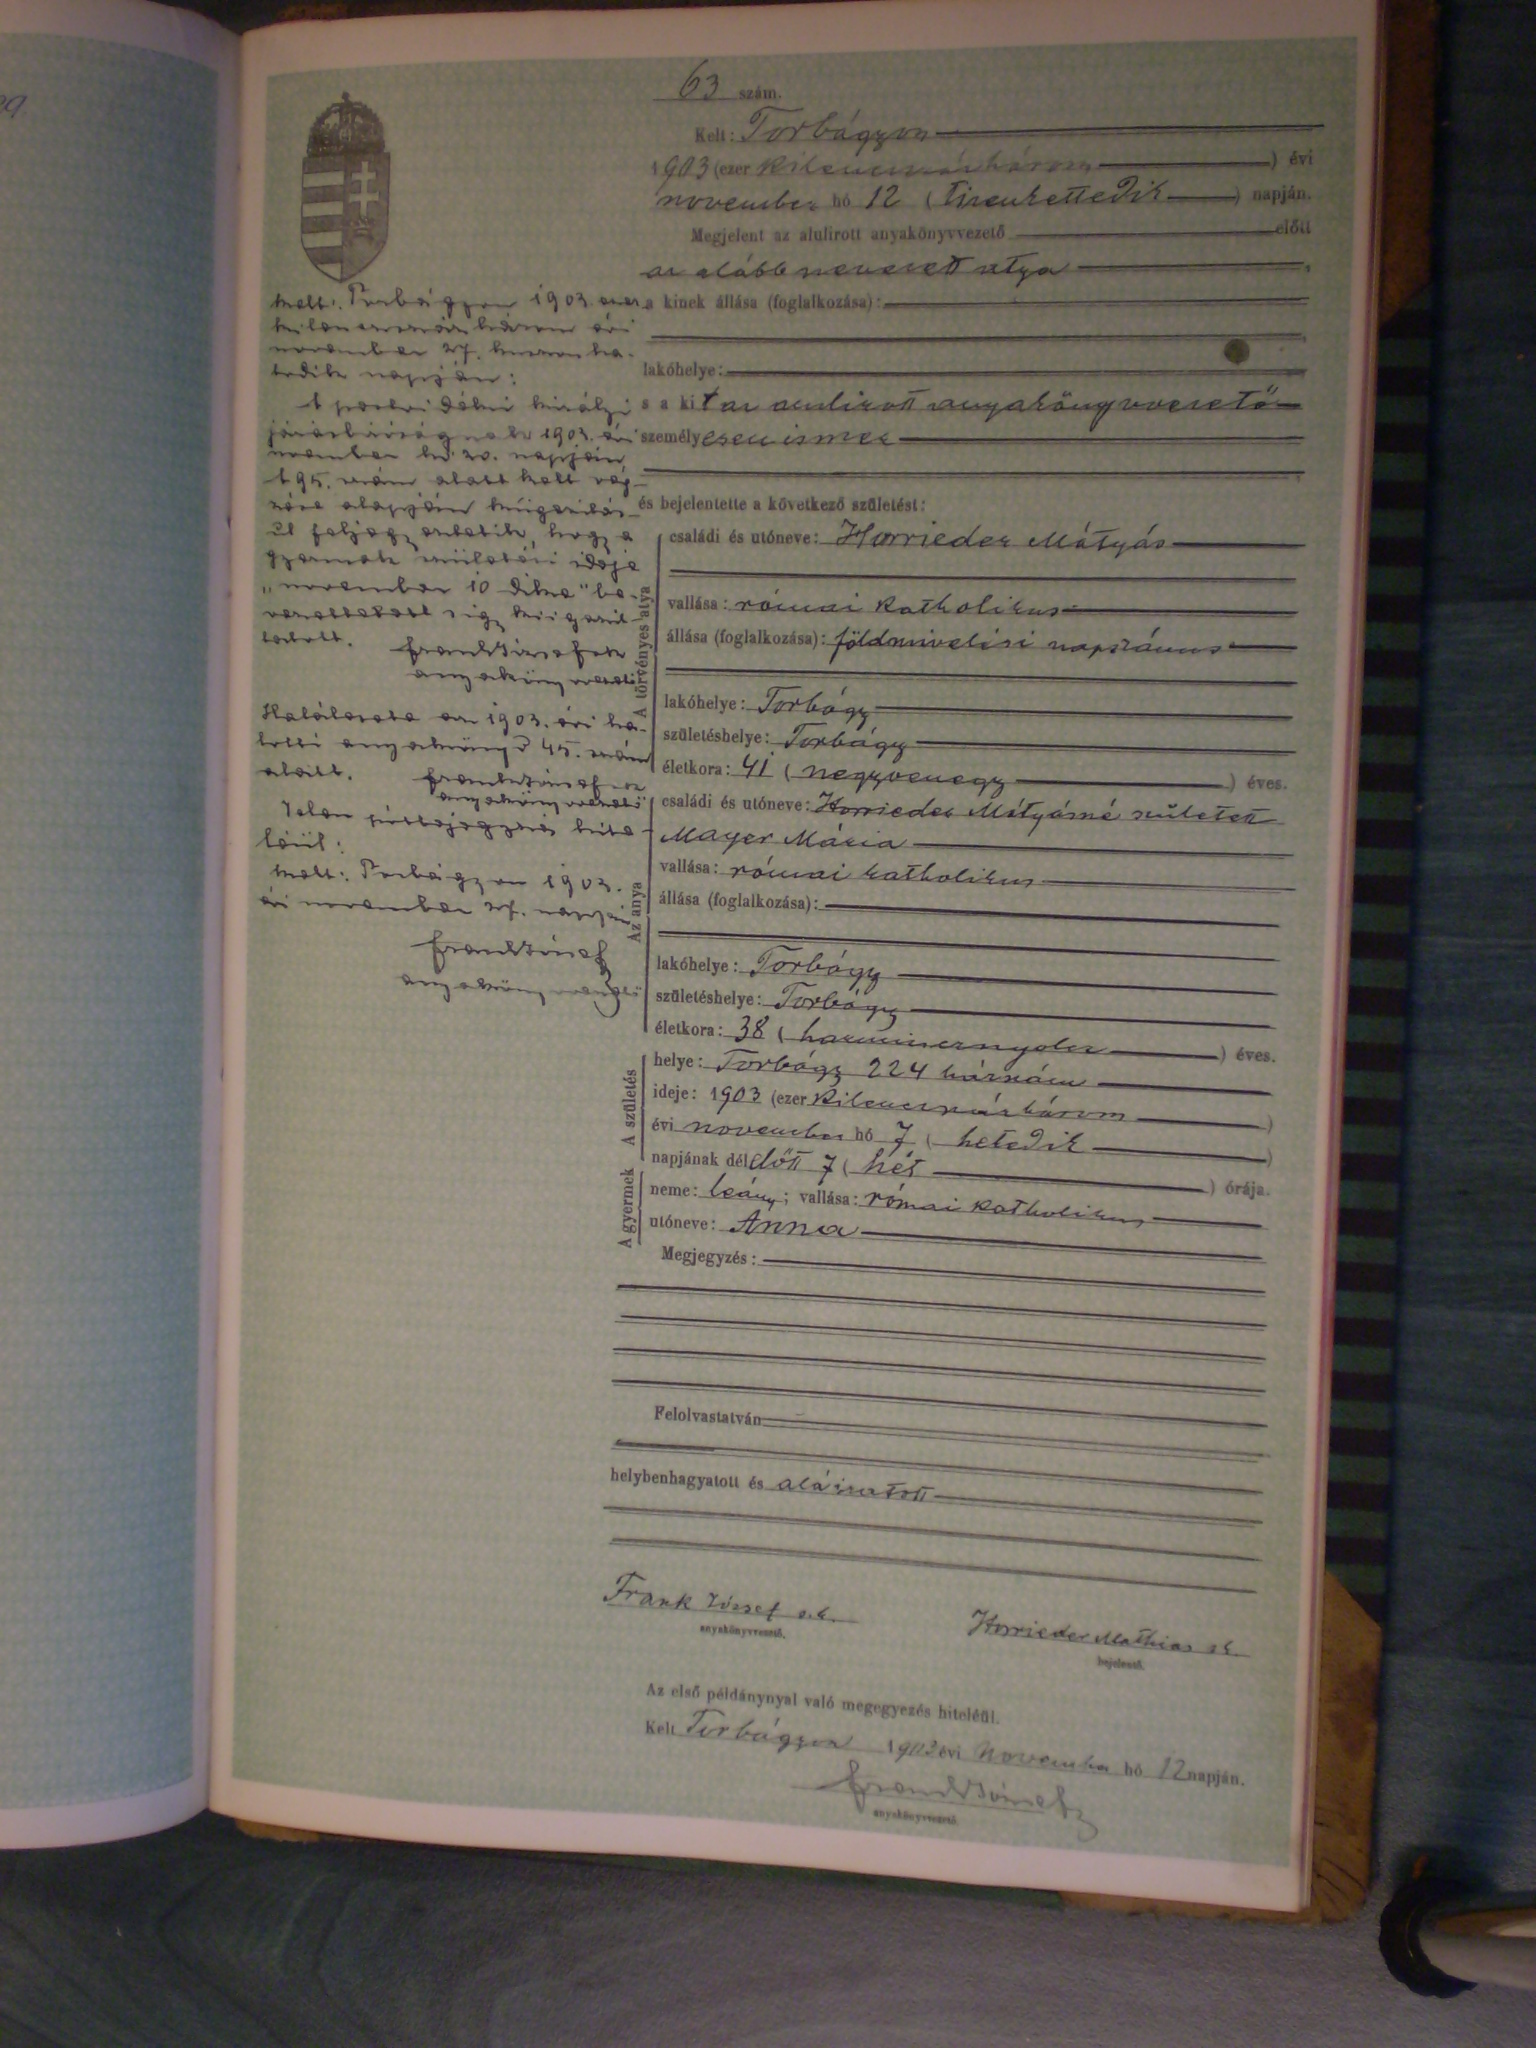 63 szám.
Kelt: Torbágyon
1903 (ezer kilencszázhárom) évi
november hó 12 (tizenkettedik) napján.
Megjelent az alulirott anyakönyvvezető előtt
az alább nevezett atya,
a kinek állása (foglalkozása):
lakóhelye:
s a kit az alulirott anyakönyvvezető
személyesen ismer
és bejelentette a következő születést:
A törvényes atya
családi és utóneve: Horrieder Mátyás
vallása: római katholikus
állása (foglalkozása): földmivelési napszámos
lakóhelye: Torbágy
születéshelye: Torbágy
életkora: 41 (negyvenegy) éves.
Az anya
családi és utóneve: Horrieder Mátyásné született
Mayer Mária
vallása: római katholikus
állása (foglalkozása):
lakóhelye: Torbágy
születéshelye: Torbágy
életkora: 38 (harmincznyolcz) éves.
A születés
helye: Torbágy 224 házszám
ideje: 1903 (ezer kilencszázhárom)
évi november hó 7 (hetedik)
napjának délelőtt 7 (hét) órája.
A gyermek
neme: leány; vallása: római katholikus
utóneve: Anna
Megjegyzés:
Felolvastatván
helybenhagyatott és aláiratott
Frank József s.k.
anyakönyvvezető.
Horrieder Mathias sk.
bejelentő.
Az első példánynyal való megegyezés hiteléül.
Kelt Torbágyon 1903 évi November hó 12 napján.
Frank József
anyakönyvvezető.
Kelt: Torbágyon 1903. ezer
kilencszázhárom évi
november 27. huszonhe-
tedik napján:
A királyi
járásbíróságnak 1903. évi
november hó 20. napján
195. szám alatt kelt vég-
zése alapján kiigazitás-
ul feljegyeztetik, hogy a
gyermek születési ideje
„november 10 dike" be-
vezettetett s igy kiigazit-
tatott. Frank József
anyakönyvvezető
Halálesete az 1903. évi ha-
lotti anyakönyv 45. szám
alatt. Frank József
anyakönyvvezető
Jelen hite-
léül:
Kelt: Torbágyon 1903.
évi november 27. napján
Frank József
anyakönyvvezető